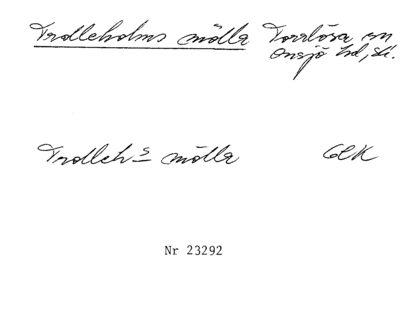 Trolleholms mölla Torrlösa sn
Onsjö hd, Sk.
Trolleh=s mölla GEK
Nr 23292